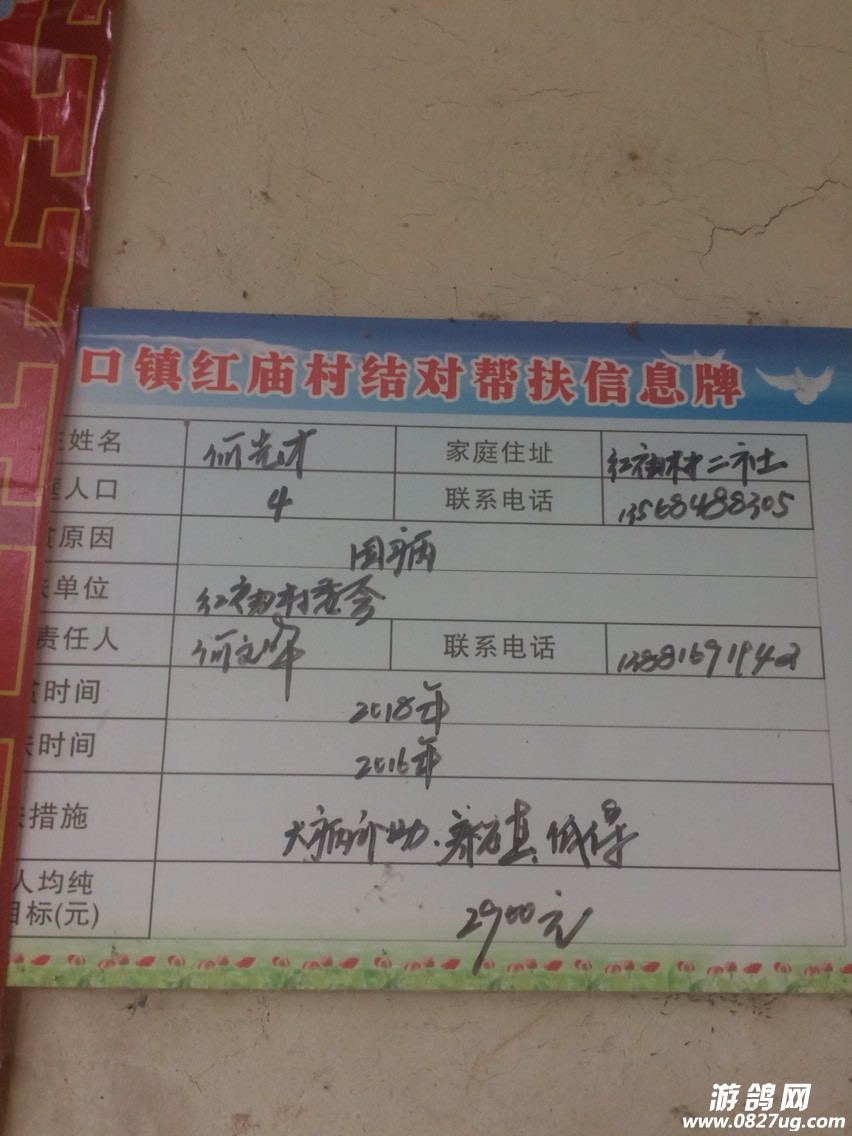 口镇红庙村结对帮扶信息牌
主姓名 何光才 家庭住址 红庙村二社
庭人口 4 联系电话 13568488305
贫原因 因病
扶单位 红庙村委会
责任人 何文军 联系电话
贫时间 2018年
扶时间 2016年
扶措施 大病补助.低保
人均纯
目标(元) 2900元
游鸽网
www.0827ug.com